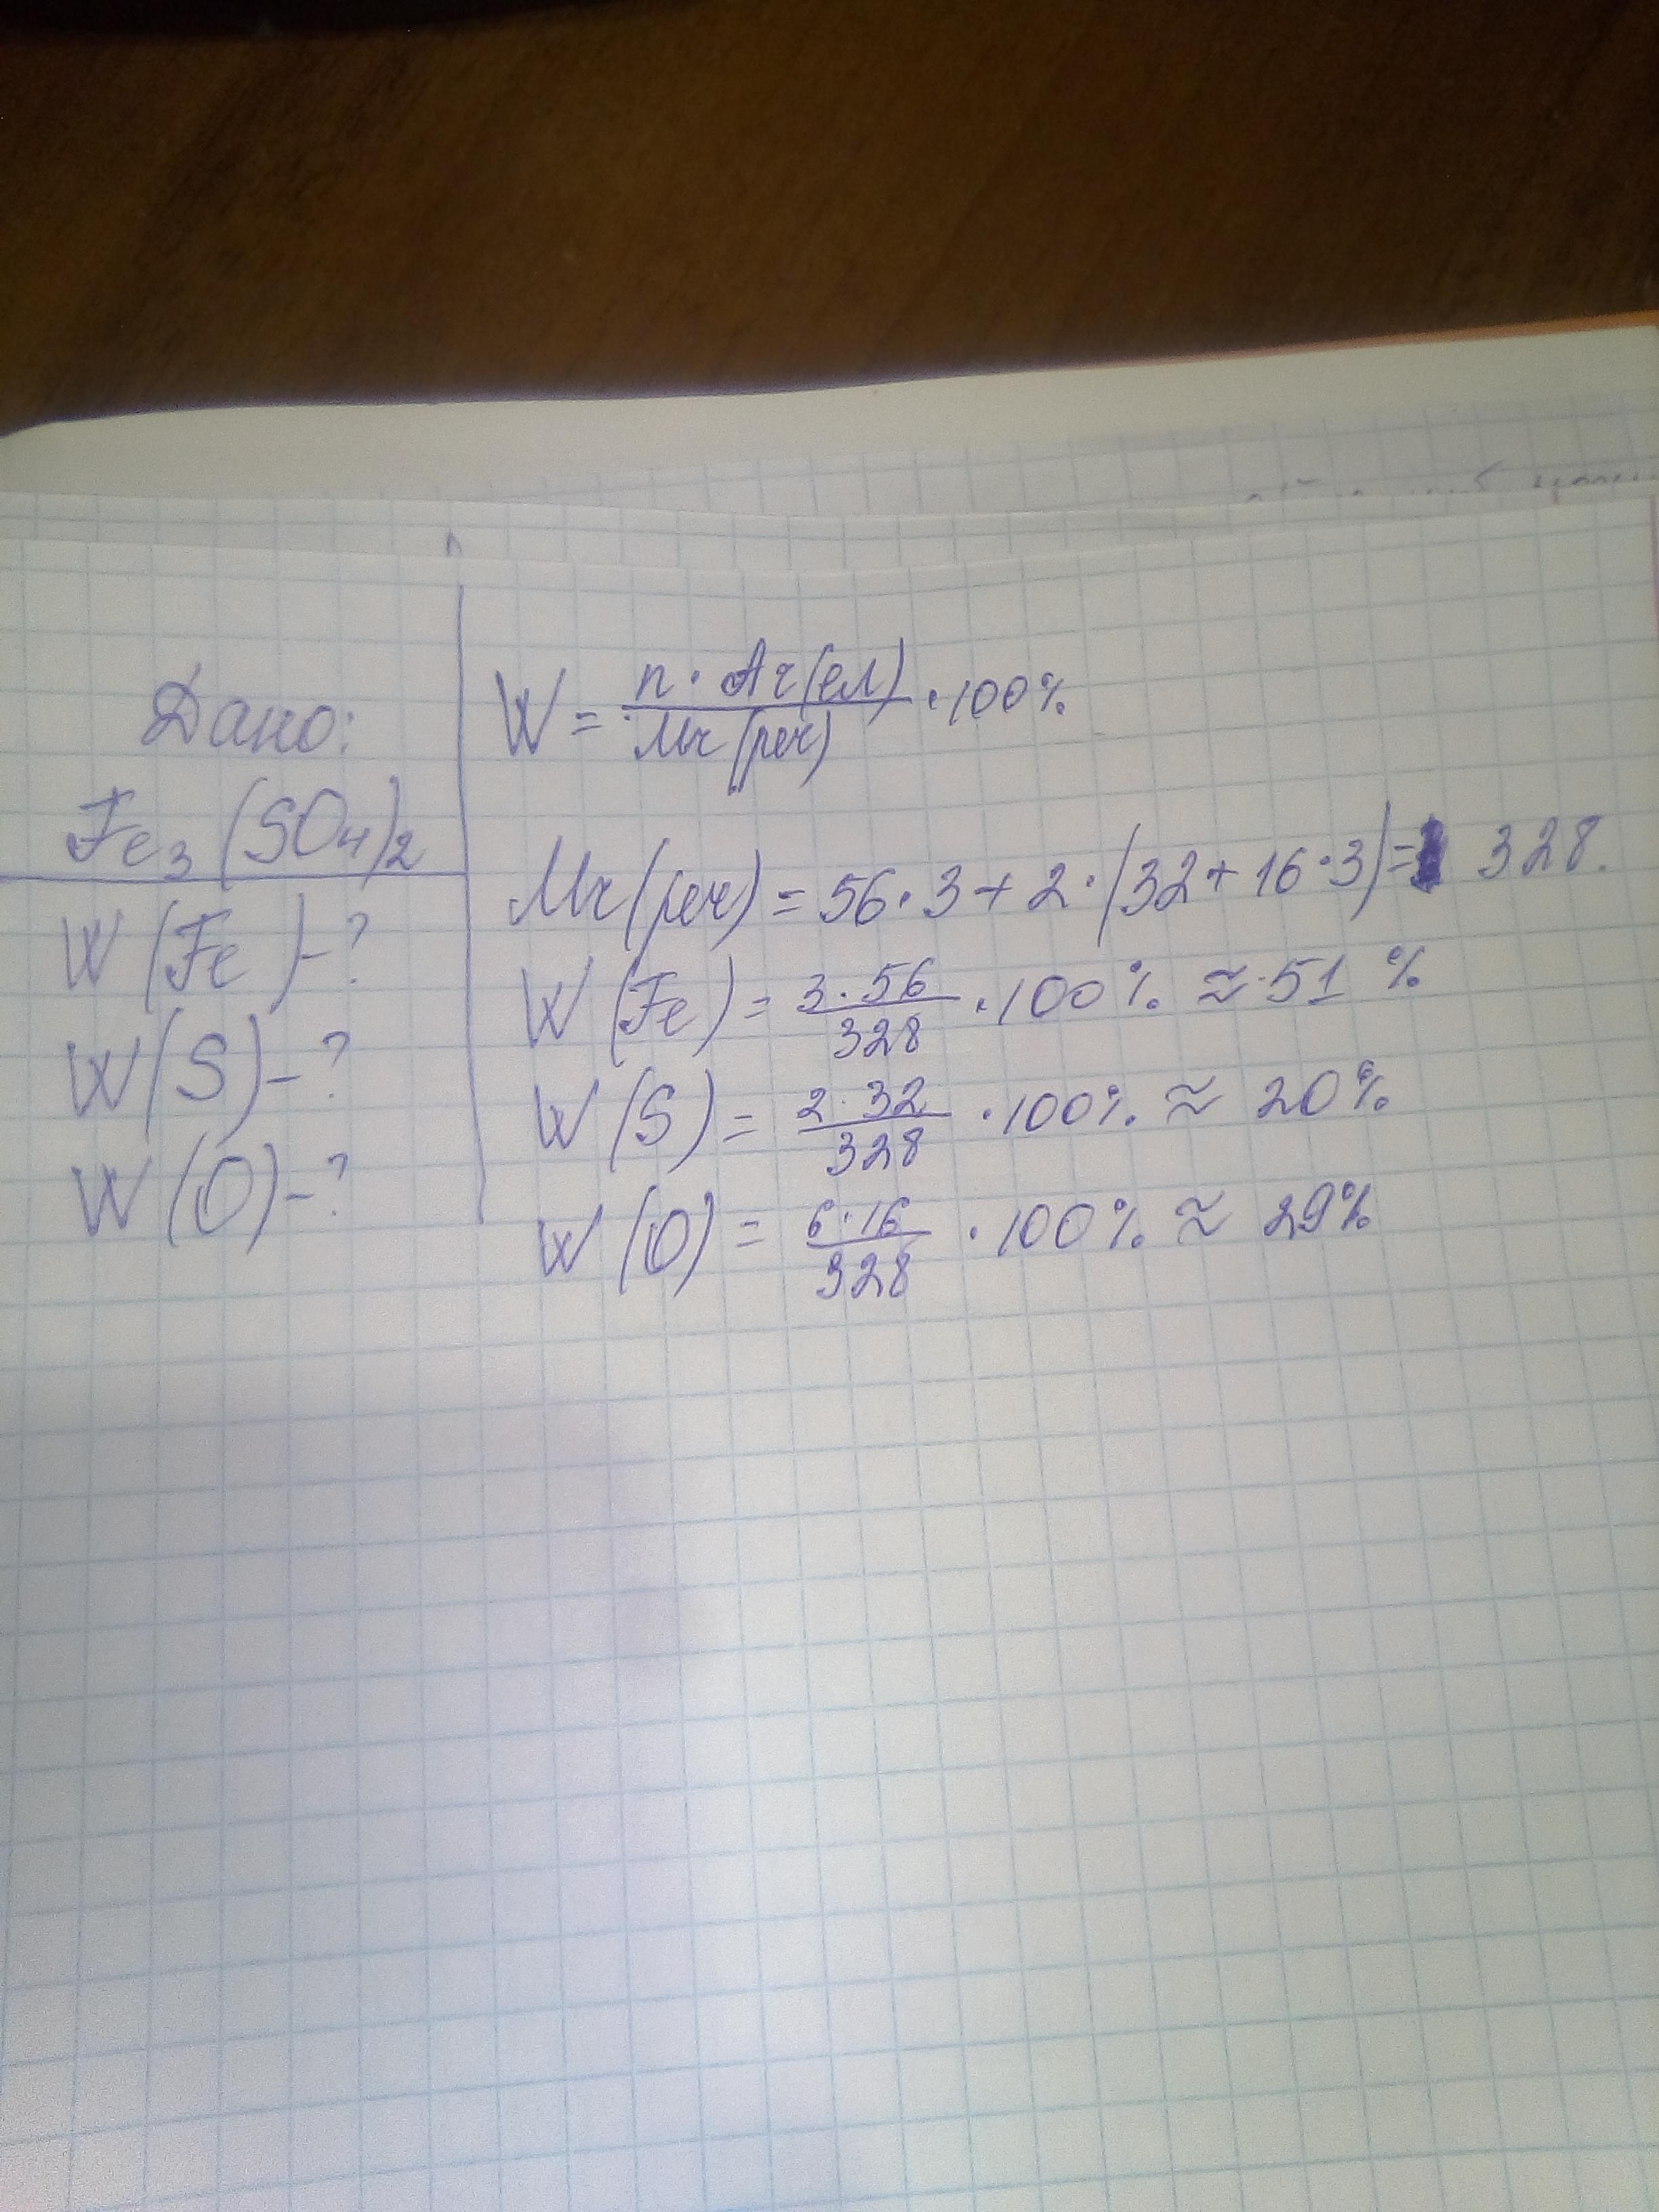 Дано:
Fe₃(SO₄)₂
W(Fe)-?
W(S)-?
W(O)-?
W = n · Ar(ел) / Mr(реч) · 100%
Mr(реч) = 56·3+2·(32+16·3)= 328.
W(Fe) = 3·56 / 328 · 100% ≈ 51 %
W(S) = 2·32 / 328 · 100% ≈ 20%
W(O) = 6·16 / 328 · 100% ≈ 29%